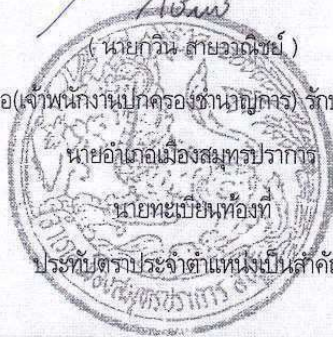 ( นายกวิน สายวาณิชย์ )
อ(เจ้าพนักงานปกครองชำนาญการ) รักษ
นายอำเภอเมืองสมุทรปราการ
นายทะเบียนท้องที่
ประทับตราประจำตำแหน่งเป็นสำคัญ